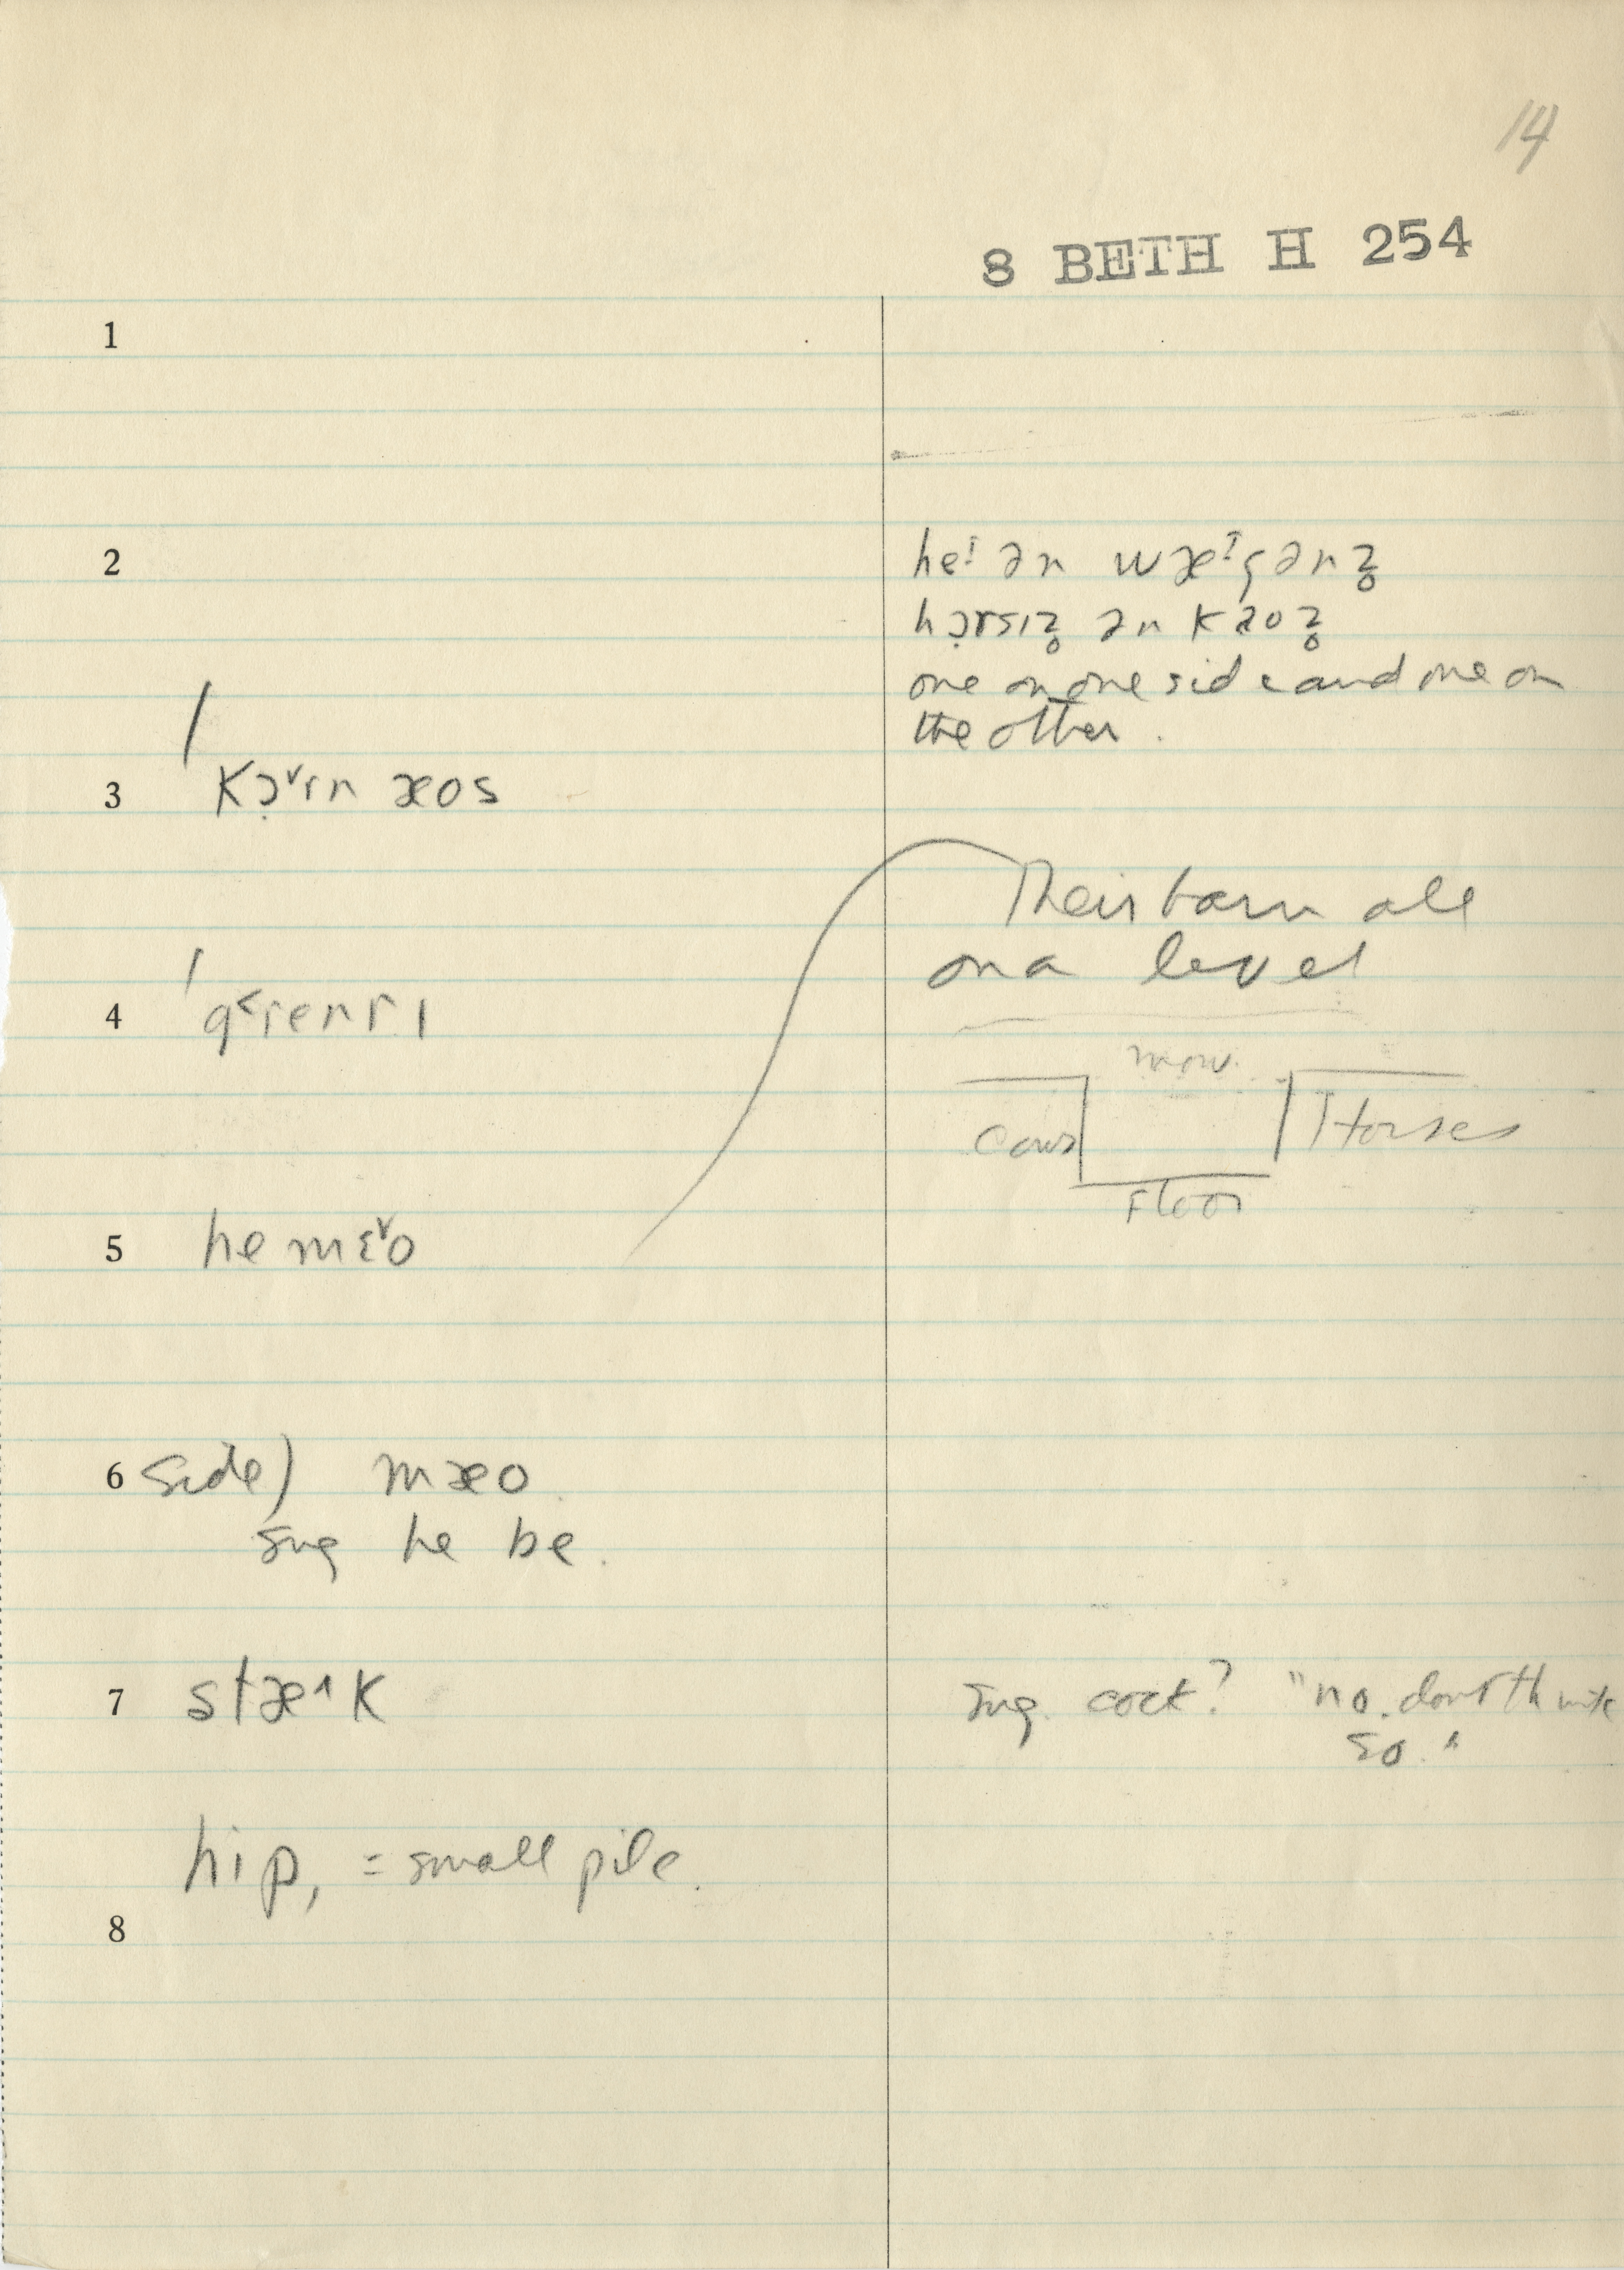 14
8 BETH H 254
1
2
heꟾ ən wæꟾgənz̥
hɔ̣rsɪz̥ ən kaoz̥
one on one side and one on
the other.
3 kɔ̣˅ɪn æos
Their barn all
on a level
4 g˂renrɪ
mow.
Cows
Horses
Floor
5 he mɛ˅o
6 side) mæo
sug he be.
7 stæ˄k
sug. cock? "no. don't think
so."
hip, = small pile.
8